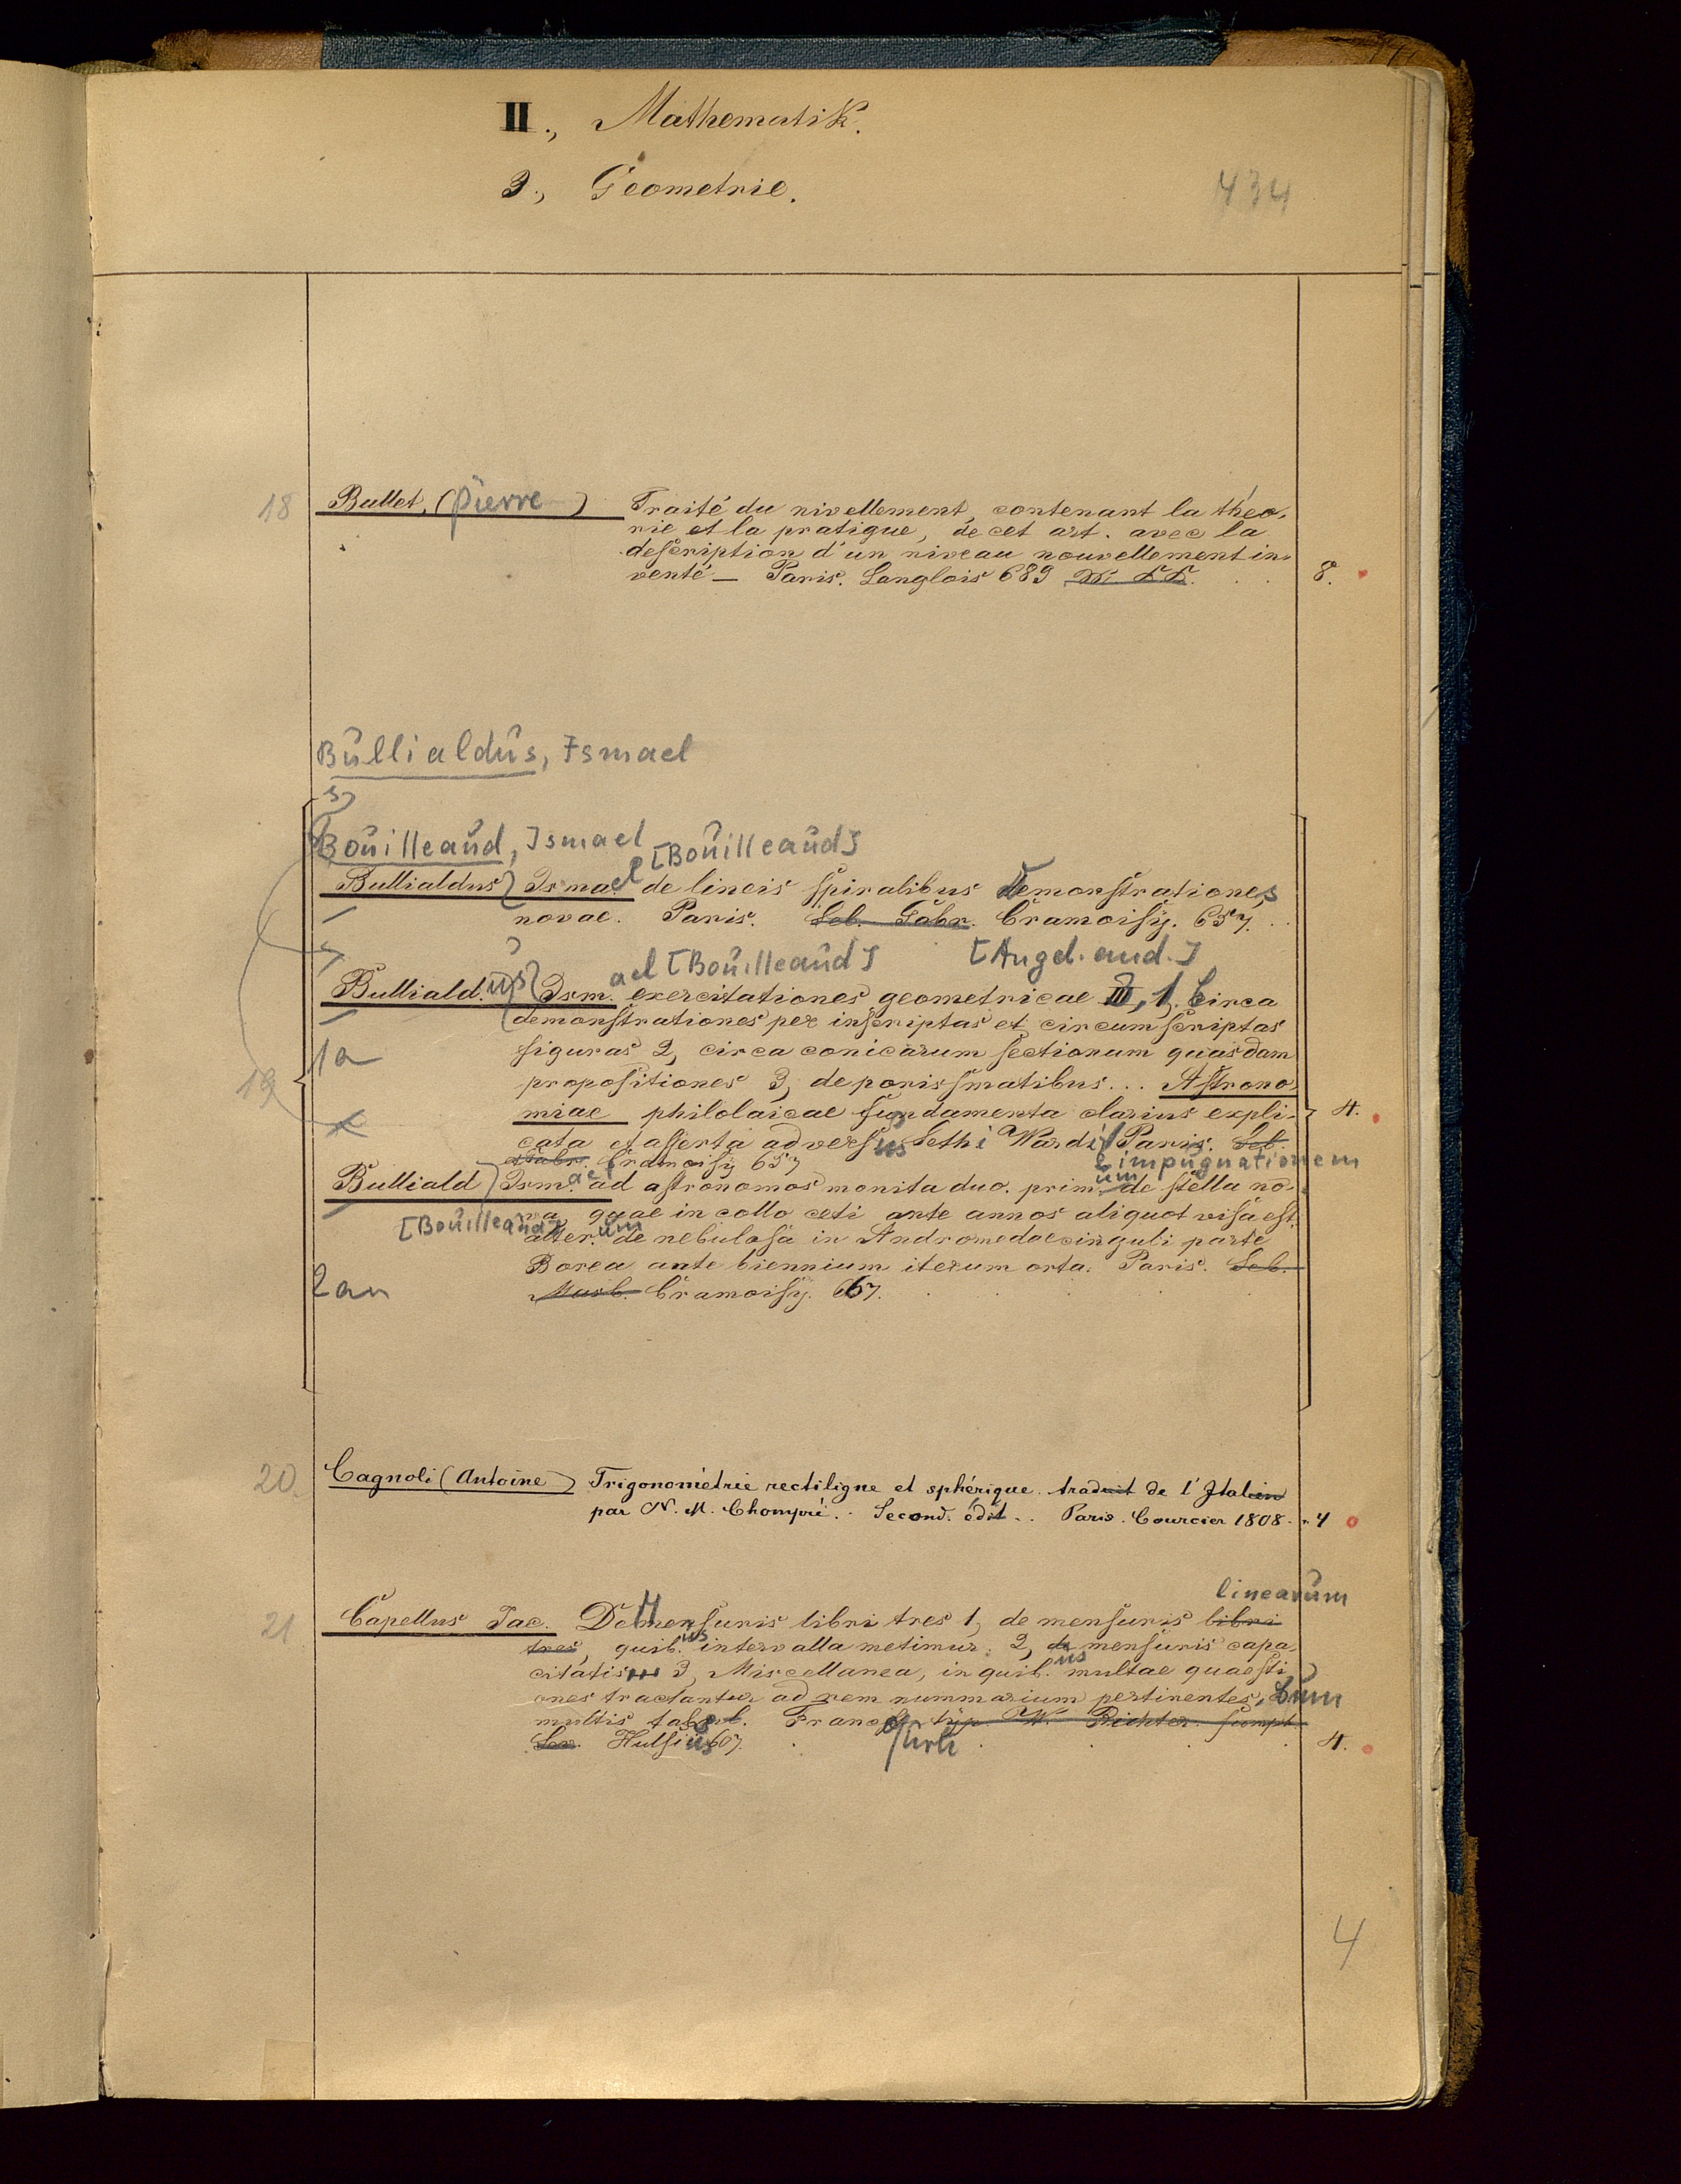 II., Mathematik.
3., Geometrie.
434
18 Bullet, (Pierre) Traité du nivellement, contenant la théo-
rie et la pratique, de cet art. avec la
description d'un niveau nouvellement in-
venté — Paris. Langlois 689 8.
Bullialdus, Ismael
Bouilleaud, Ismael [Bouilleaud]
Bullialdus Ismael de lineis spiralibus Demonstrationes
novae. Paris. Seb. Gabr. Cramoisy. 657.
ael [Bouilleaud] [Angeb. and.]
19 Bulliald.us Ism. exercitationes geometricae III, 1, Circa
demonstrationes per inscriptas et circumscriptas
1a figuras 2, circa conicarum sectionum quasdam
propositiones 3, de porissmatibus... Astrono-
miae philolaicae fundamenta clarius expli- 4.
cata et asserta adversus Sethi Wardi Paris. Seb.
Cramoisy 657 impugnationem
Bulliald Ism.ael ad astronomos monita duo. prim.um de stella no-
va, quae in collo ceti ante annos aliquot visa est.
[Bouilleaud] alter.um de nebulosa in Andromedae cinguli parte
Borea ante biennium iterum orta. Paris. Seb.
2an Cramoisy. 667.
20. Cagnoli (Antoine) Trigonométrie rectiligne et sphérique. traduit de l'Italien
par N. M. Chompré. Second. édit.. Paris. Courcier 1808. 4
linearum
21 Capellus Jac. De mensuris libri tres 1, de mensuris libri
tres, quib.us intervalla metimur. 2, de mensuris capa-
citatis 3, Miscellanea, in quib.us multae quaesti-
ones tractantur ad rem nummarium pertinentes, cum
multis tabul. Francof. typ. W. Richter. sumpt.
Lev. Hulsius 607. furti 4.
4